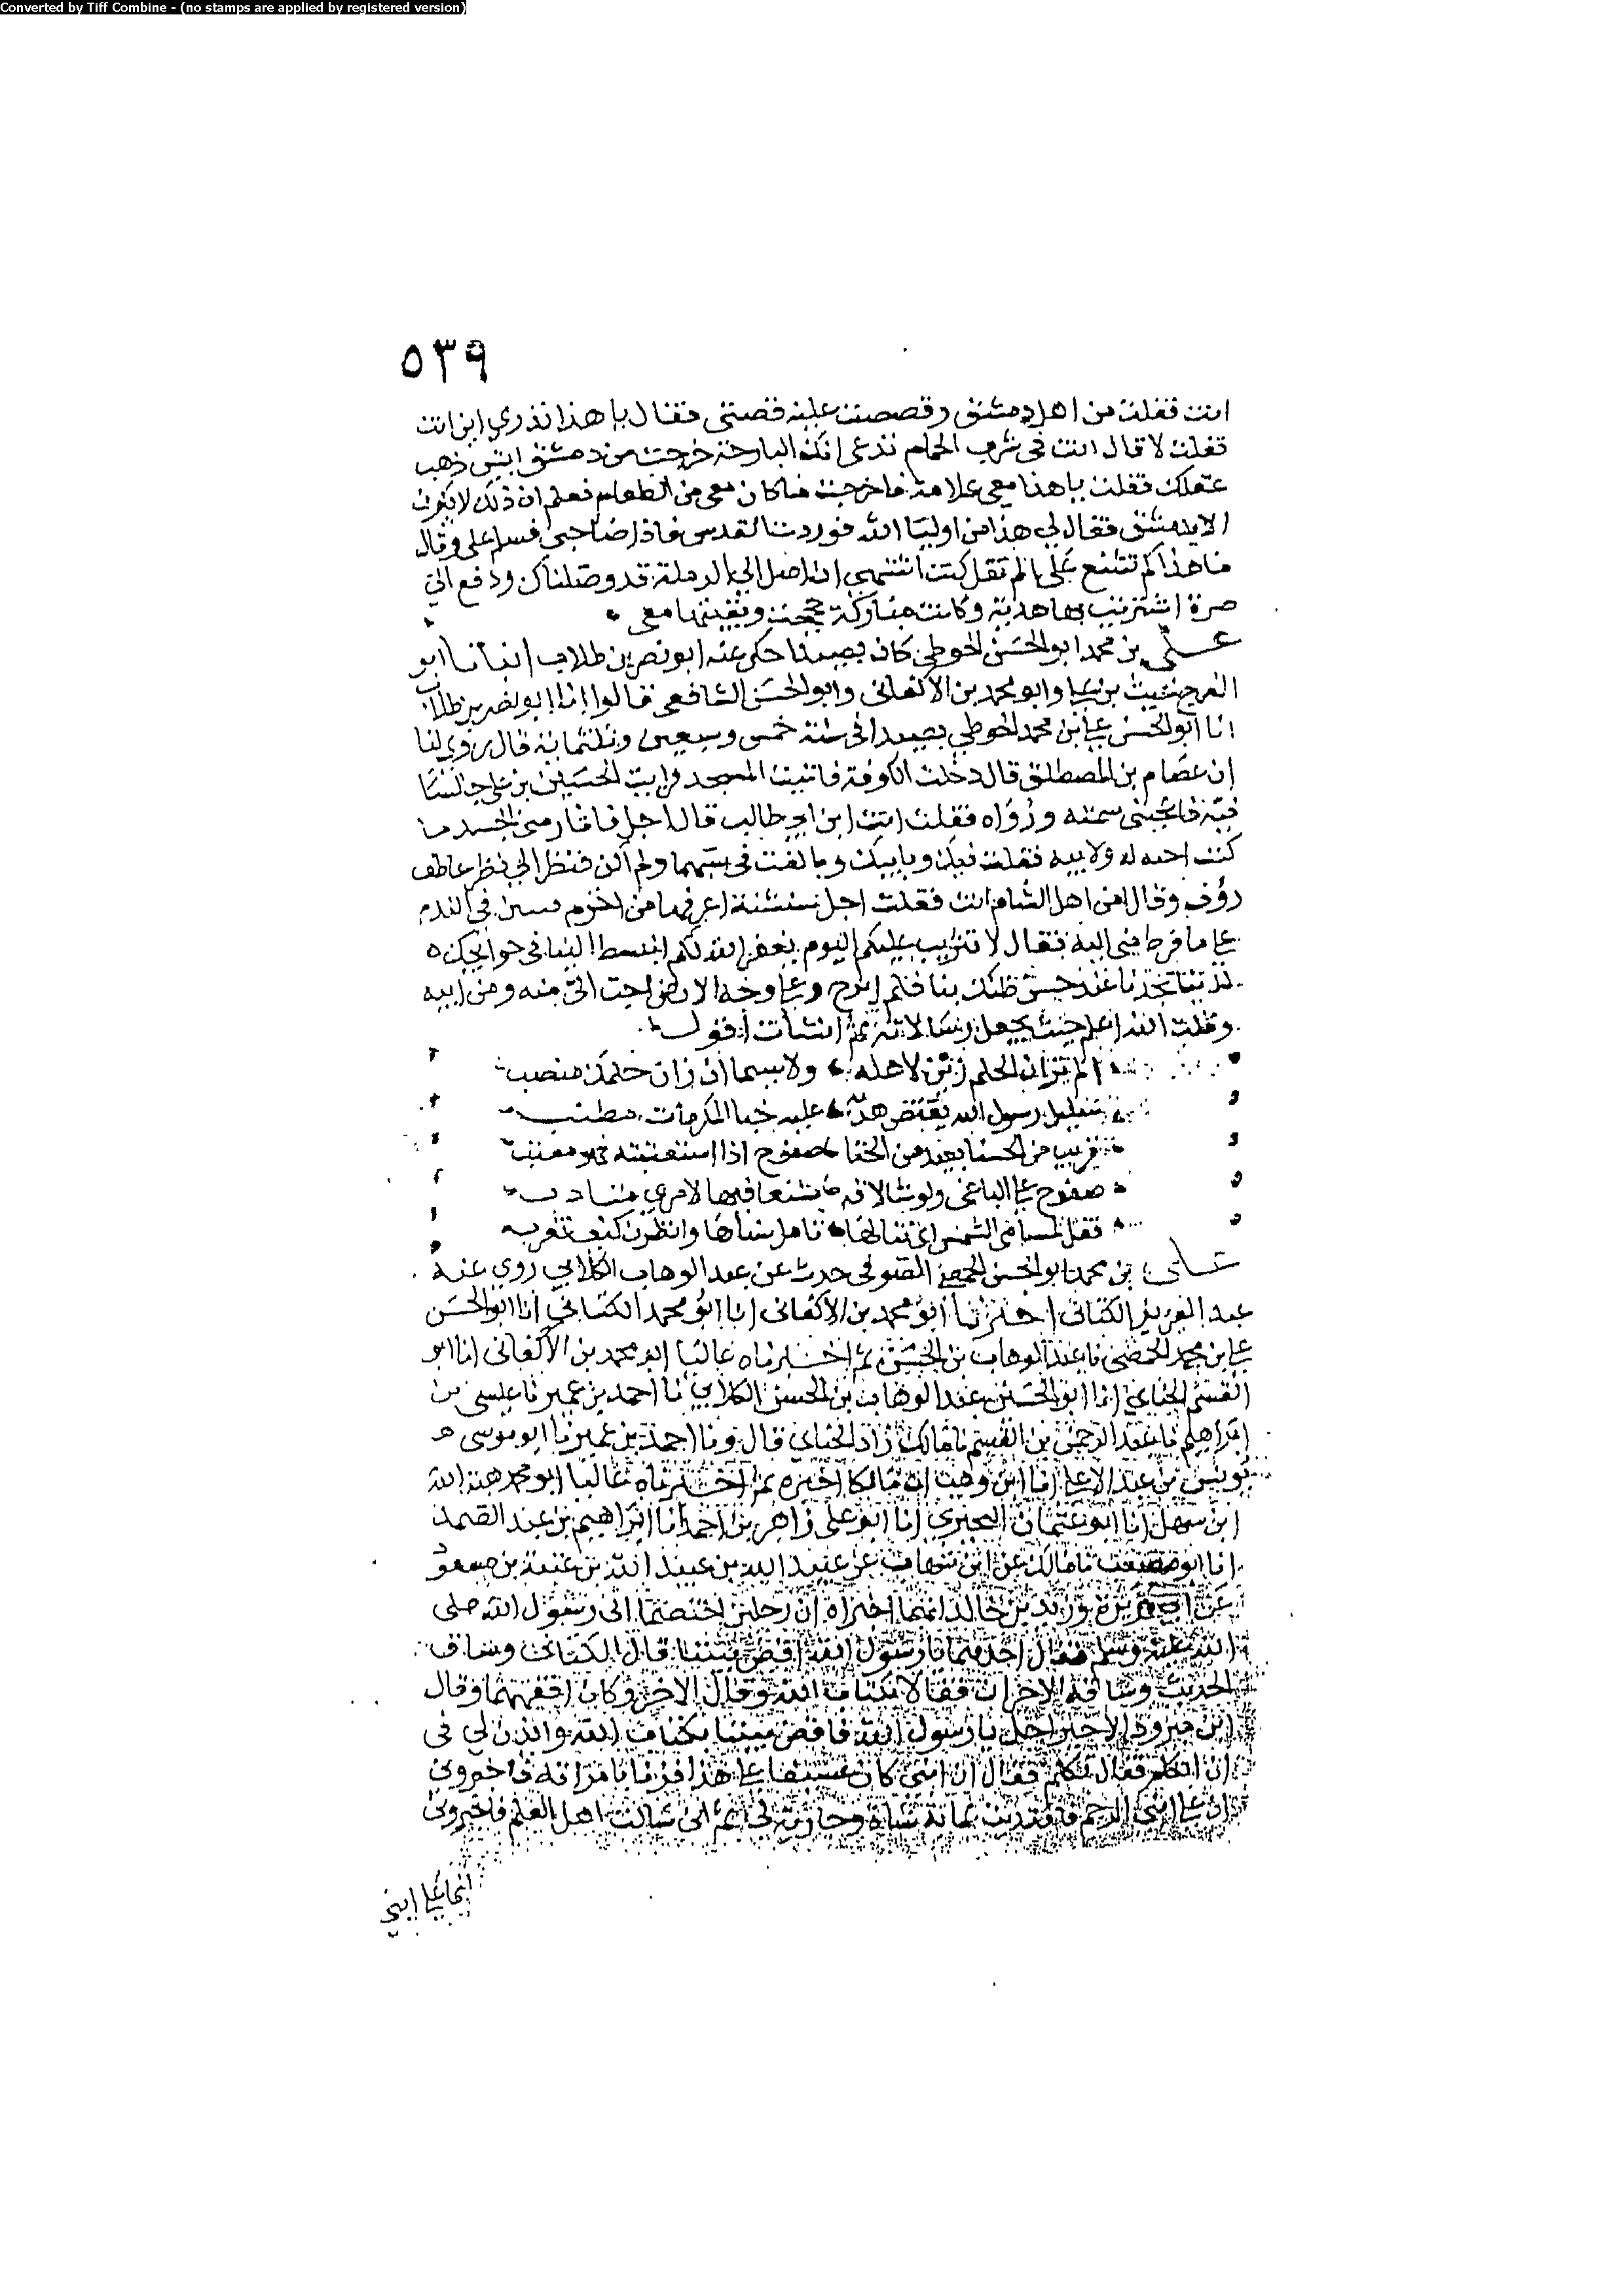 Converted by Tiff Combine - (no stamps are applied by registered version)
٥٣٩
انت فقلت من اهل دمشق وقصصت عليه قصتي فقال يا هذا تدري اين انت
فقلت لا قال انت في شرف الحمام تدعي انك البارحة خرجت من دمشق ايش ذهب
عقلك فقلت يا هذا معي علامة فاخرجت ما كان معي من الطعام فعلم ان ذلك لا يكون
الا بدمشق فقال لي هذا من اوليا الله فوردت القدس فاذا صاحبي فسلم علي وقال
ما هذا كم تشنع علي الم تقل كنت اشتهي ان اصل الى الرملة قد وصلناك ودفع الي
صرة اشتريت بها هدية وكانت مباركة حججت وبقيتها معي
علي بن محمد ابو الحسن الحوطي كان بصيدا حكى عنه ابو نصر بن طلاب انبأنا ابو
الفرج غيث بن علي وابو محمد بن الاكفاني وابو الحسن الشافعي قالوا انا ابو نصر بن طلاب
انا ابو الحسن علي بن محمد الحوطي بصيدا في سنة خمس وسبعين وثلثماية قال روي لنا
ان عصام بن المصطلق قال دخلت الكوفة فاتيت المسجد فرايت الحسين بن علي جالسا
فيه فاعجبني سمته ورؤاه فقلت انت ابن ابي طالب قال اجل فاثار مني الحسد ما
كنت اجنه له ولابيه فقلت فيك وبابيك وبالغت في سبهما ولم اكن فنظر الي نظر عاطف
رؤف وقال امن اهل الشام انت فقلت اجل شنشنة اعرفها من اخزم فتبين في الندم
على ما فرط مني اليه فقال لا تثريب عليكم اليوم يغفر الله لكم انبسط الينا في حوايجك
لديتنا تجدنا عند حسن ظنك بنا فلم ابرح وعلى وجه الارض احب الي منه ومن ابيه
وقلت الله اعلم حيث يجعل رسالاته ثم انشأت اقول
الم تر ان الحلم زين لاهله ولا سيما ان زان حلمك منصب
سليل رسول الله يقتص هديه عليه خبا المكرمات مطنب
قريب من الحسنى بعيد من الخنا صفوح اذا استعتبته فهو معتب
صفوح على الباغي ولو شا لاقه بشنعا فيها لامرئ متادب
فقل لمسامي الشمس انى تنالها تامل سناها وانظرن كيف تغرب
علي بن محمد ابو الحسن الحمصي الصوفي حدث عن عبد الوهاب الكلابي روى عنه
عبد العزيز الكتاني اخبرنا ابو محمد بن الاكفاني انا ابو محمد الكتاني انا ابو الحسن
علي بن محمد الحمصي نا عبد الوهاب بن الحسن ثم اخبرناه عاليا ابو محمد بن الاكفاني انا ابو
القسم الحنائي انا ابو الحسين عبد الوهاب بن الحسن الكلابي نا احمد بن عمير نا عيسى بن
ابراهيم نا عبد الرحمن بن القسم نا مالك زاد الحنائي قال ونا احمد بن عمير نا ابو موسى
يونس بن عبد الاعلى انا ابن وهب ان مالكا اخبره ثم اخبرناه عاليا ابو محمد هبة الله
ابن سهل انا ابو عثمان البحيري انا ابو علي زاهر بن احمد انا ابراهيم بن عبد الصمد
انا ابو مصعب نا مالك عن ابن شهاب عن عبيد الله بن عبد الله بن عتبة بن مسعود
عن ابي هريرة وزيد بن خالد انهما اخبراه ان رجلين اختصما الى رسول الله صلى
الله عليه وسلم فقال احدهما يا رسول الله اقض بيننا قال الكتاني وساق
الحديث وساقه الاخران فقالا بكتاب الله وقال الاخر وكان افقههما وقال
ابن ميرود الاخير اجل يا رسول الله فاقض بيننا بكتاب الله وائذن لي في
ان اتكلم فقال تكلم فقال ان ابني كان عسيفا على هذا فزنا بامراته فاخبروني
ان على ابني الرجم فافتديت بماية شاة وجارية لي ثم اني سالت اهل العلم فاخبروني
انما على ابني